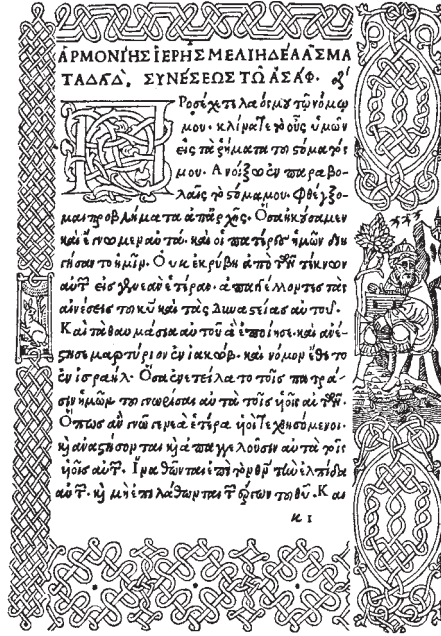 ἉΡΜΟΝΙΗΣ ἹΕΡΗΣ ΜΕΛΙΗΔΕΑ ἈΣΜΑ
ΤΑ ΔΑΔ. ΣΥΝΕΣΕΩΣ ΤΩ ἈΣΑΦ.
Προσέχετε λαός μου τῷ νόμῳ
μου. κλίνατε τὸ οὖς ὑμῶν
εἰς τὰ ῥήματα τοῦ στόματός
μου. Ἀνοίξω ἐν παραβο-
λαῖς τὸ στόμα μου. Φθέγξο-
μαι προβλήματα ἀπ' ἀρχῆς. Ὅσα ἠκούσαμεν
καὶ ἔγνωμεν αὐτά. καὶ οἱ πατέρες ἡμῶν διη
γήσαντο ἡμῖν. Οὐκ ἐκρύβη ἀπὸ τῶν τέκνων
αὐτῶν εἰς γενεὰν ἑτέραν. ἀπαγγέλλοντες τὰς
αἰνέσεις τοῦ κυ καὶ τὰς δυναστείας αὐτοῦ.
Καὶ τὰ θαυμάσια αὐτοῦ ἃ ἐποίησε. καὶ ἀνέ-
στησε μαρτύριον ἐν ἰακώβ. καὶ νόμον ἔθετο
ἐν ἰσραήλ. Ὅσα ἐνετείλατο τοῖς πατρά-
σιν ἡμῶν τοῦ γνωρίσαι αὐτὰ τοῖς υἱοῖς αὐτῶν.
Ὅπως ἂν γνῷ γενεὰ ἑτέρα υἱοὶ τεχθησόμενοι.
καὶ ἀναστήσονται καὶ ἀπαγελοῦσιν αὐτὰ τοῖς
υἱοῖς αὐτῶν. Ἵνα θῶνται ἐπὶ τὸν θν τὴν ἐλπίδα
αὐτῶν. καὶ μὴ ἐπιλάθωνται τῶν ἔργων τοῦ θυ. Καὶ
κ ι